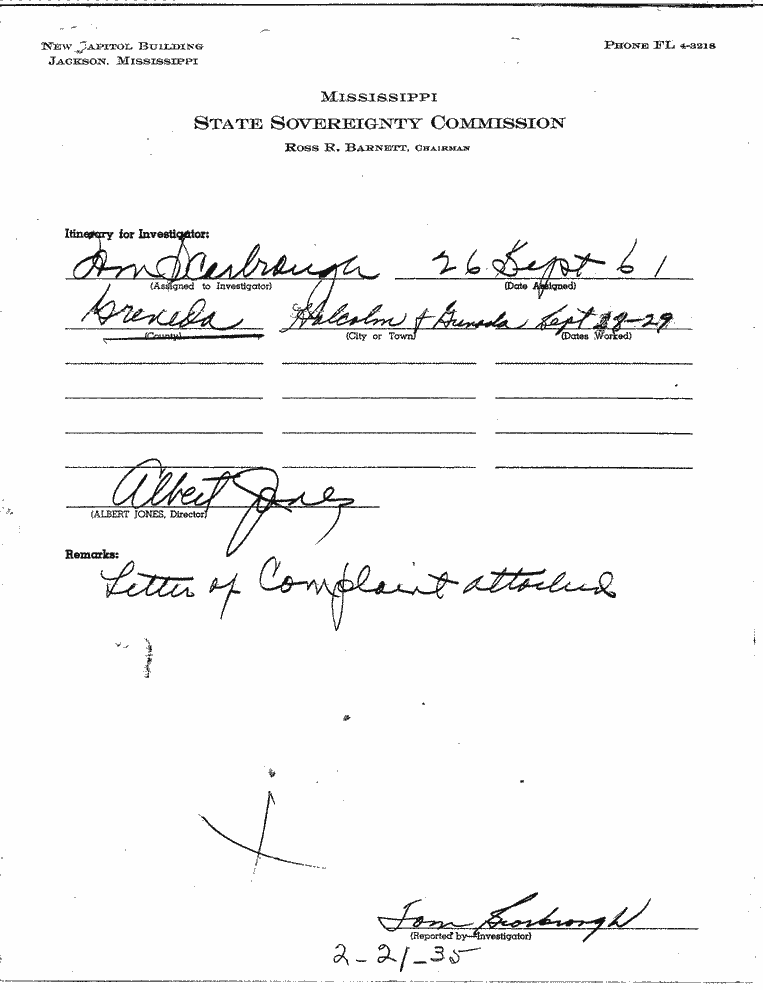 NEW CAPITOL BUILDING
JACKSON, MISSISSIPPI
PHONE FL 4-3218
MISSISSIPPI
STATE SOVEREIGNTY COMMISSION
ROSS R. BARNETT, CHAIRMAN
Itinerary for Investigator:
Tom Scarbrough 26 Sept 61
(Assigned to Investigator) (Date Assigned)
Grenada Holcolm & Grenada Sept 28-29
(County) (City or Town) (Dates Worked)
Albert Jones
(ALBERT JONES, Director)
Remarks:
Letter of Complaint attached
Tom Scarbrough
(Reported by Investigator)
2-21-35